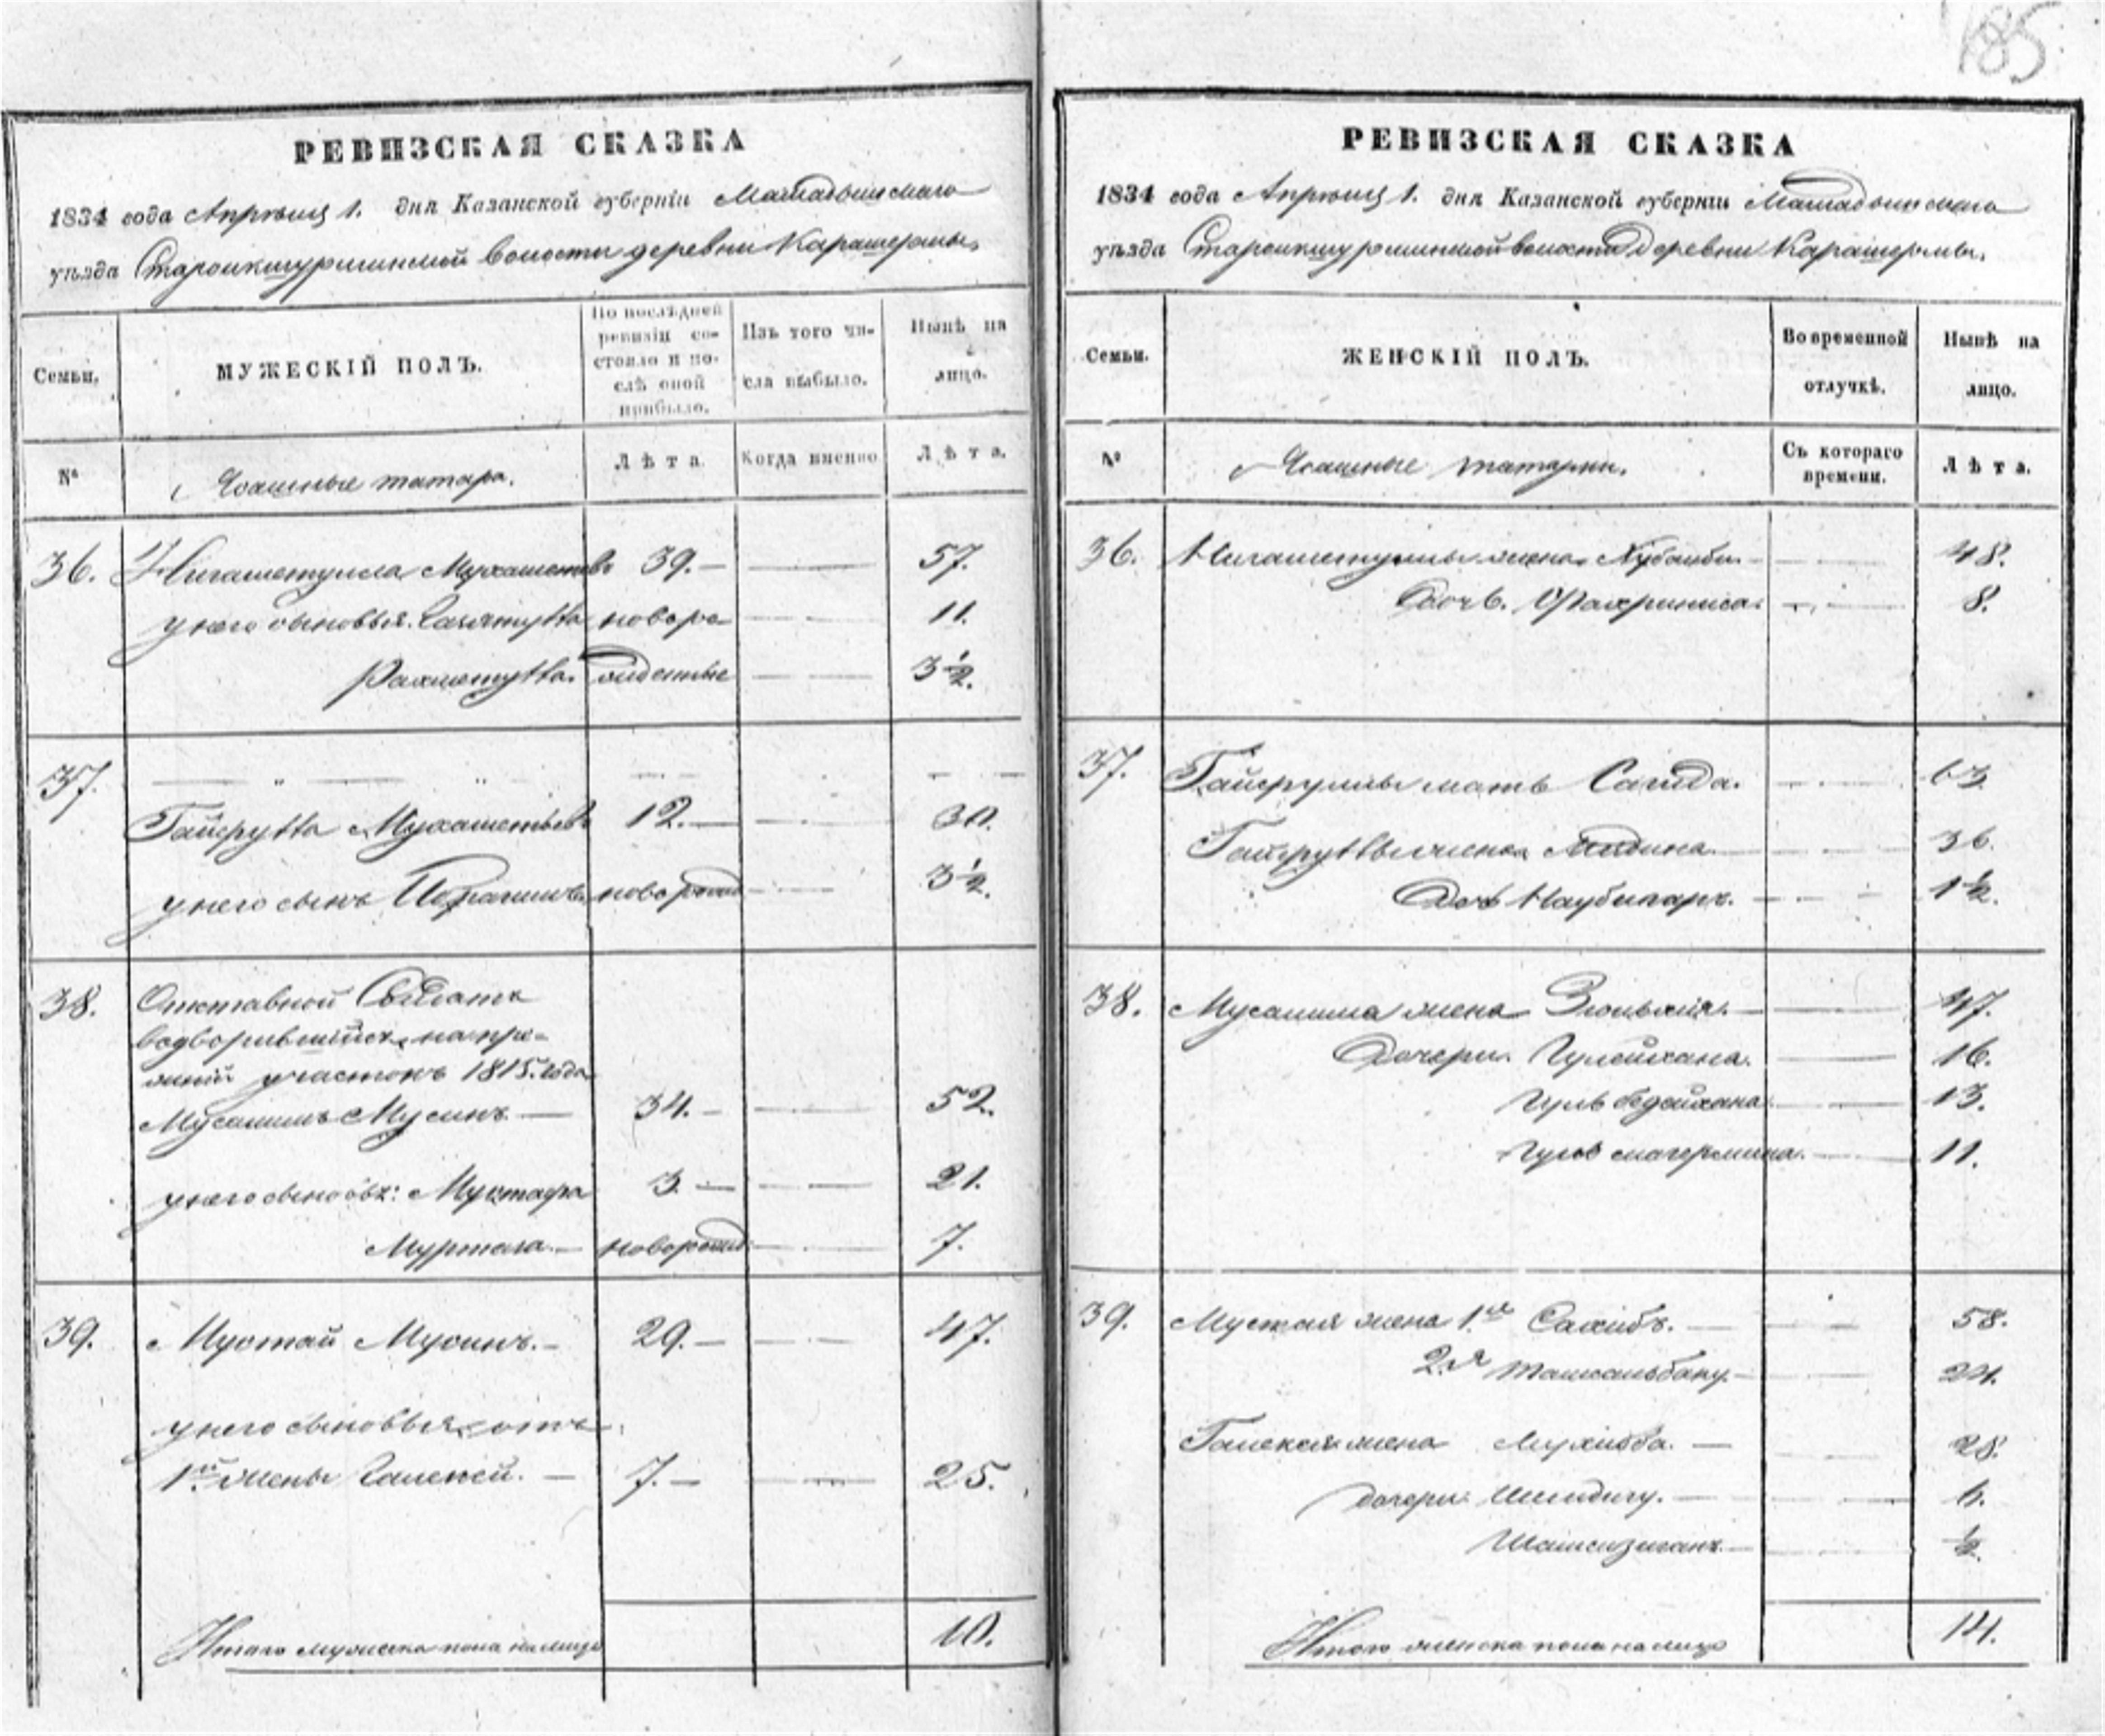 185
РЕВИЗСКАЯ СКАЗКА
1834 года Апрѣля 1. дня Казанской губерніи Мамадышскаго
уѣзда Староикшурминской волости деревни Карашермы.
Семьи.
МУЖЕСКІЙ ПОЛЪ.
По послѣдней ревизіи состояло и послѣ оной прибыло.
Изъ того числа выбыло.
Нынѣ на лицо.
№
Ясашные татара.
Лѣта.
Когда именно
Лѣта.
36. Нигаметулла Мухаметевъ 39.— 57.
у него сыновья новоро- 11.
Рахметулла. жденные 3½.
37.
Гайфулла Мухаметьевъ 12.— 30.
у него сынъ Ибрагимъ новорожд 3½.
38. Отставной Солдатъ
водворившійся на пре-
жній участокъ 1815. года
Мусалимъ Мусинъ — 34.— 52.
у него сыновья: Мустафа 3.— 21.
Муртаза.— новорожд: 7.
39. Мустай Мусинъ.— 29.— 47.
у него сыновья отъ
1й жены Галекей.— 7.— 25.
Итого мужеска пола на лицо 10.
РЕВИЗСКАЯ СКАЗКА
1834 года Апрѣля 1. дня Казанской губерніи Мамадышскаго
уѣзда Староикшурминской волости деревни Карашермы.
Семьи.
ЖЕНСКІЙ ПОЛЪ.
Во временной отлучкѣ.
Нынѣ на лицо.
№
Ясашные татарки.
Съ котораго времени.
Лѣта.
36. Нигаметуллы жена Хубанби 48.
Дочь. Фахриниса. 8.
37. Гайфуллы мать Сагида. 63
Гайфуллы жена Мадина 36.
Дочь Маубикаръ. 1½.
38. Мусалима жена Зюльхія.— 47.
Дочери. Гулейхана. 16.
Гуль бедайхана 13.
11.
39. Мустая жена 1я Сахибъ.— 58.
2я 24.
Галекея жена Мухибба.— 28.
дочери: 6.
½.
Итого женска пола на лицо 14.